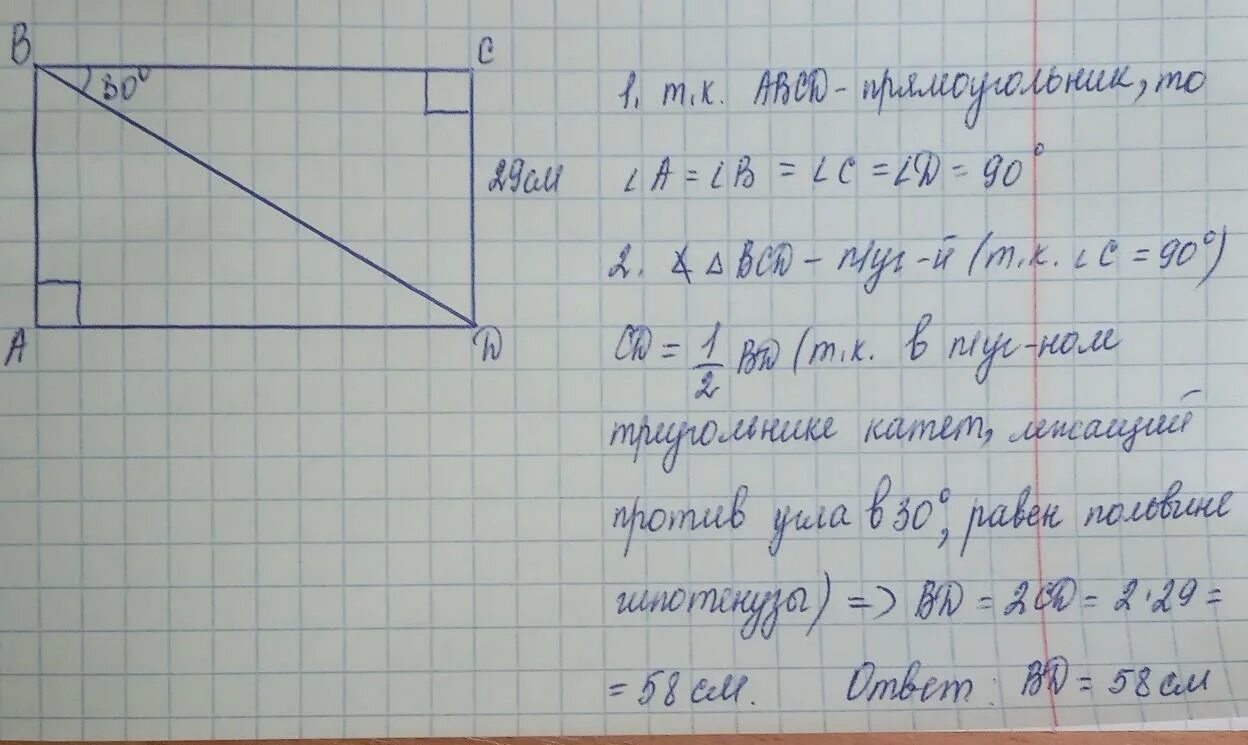 B
C
30°
29см
A
D
1. т.к. ABCD - прямоугольник, то
∠A = ∠B = ∠C = ∠D = 90°
2. ∢ △BCD - п/уг-й (т.к. ∠C = 90°)
CD = 1/2 BD (т.к. в п/уг-ном
треугольнике катет, лежащий
против угла в 30°, равен половине
гипотенузы) => BD = 2CD = 2·29 =
= 58 см. Ответ: BD = 58 см